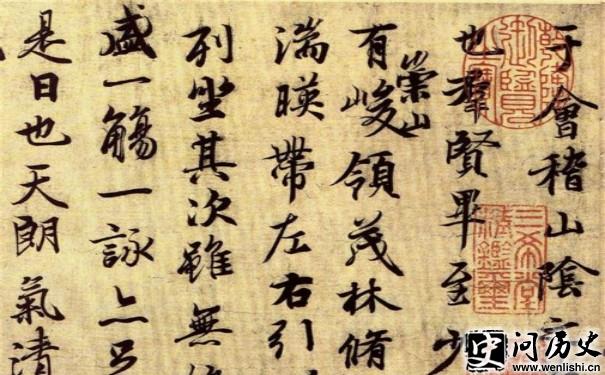 于會稽山陰
也羣賢畢至少
有崇山峻領茂林脩
湍暎帶左右引
列坐其次雖無
盛一觴一詠亦
是日也天朗氣清
问历史
www.wenlishi.cn